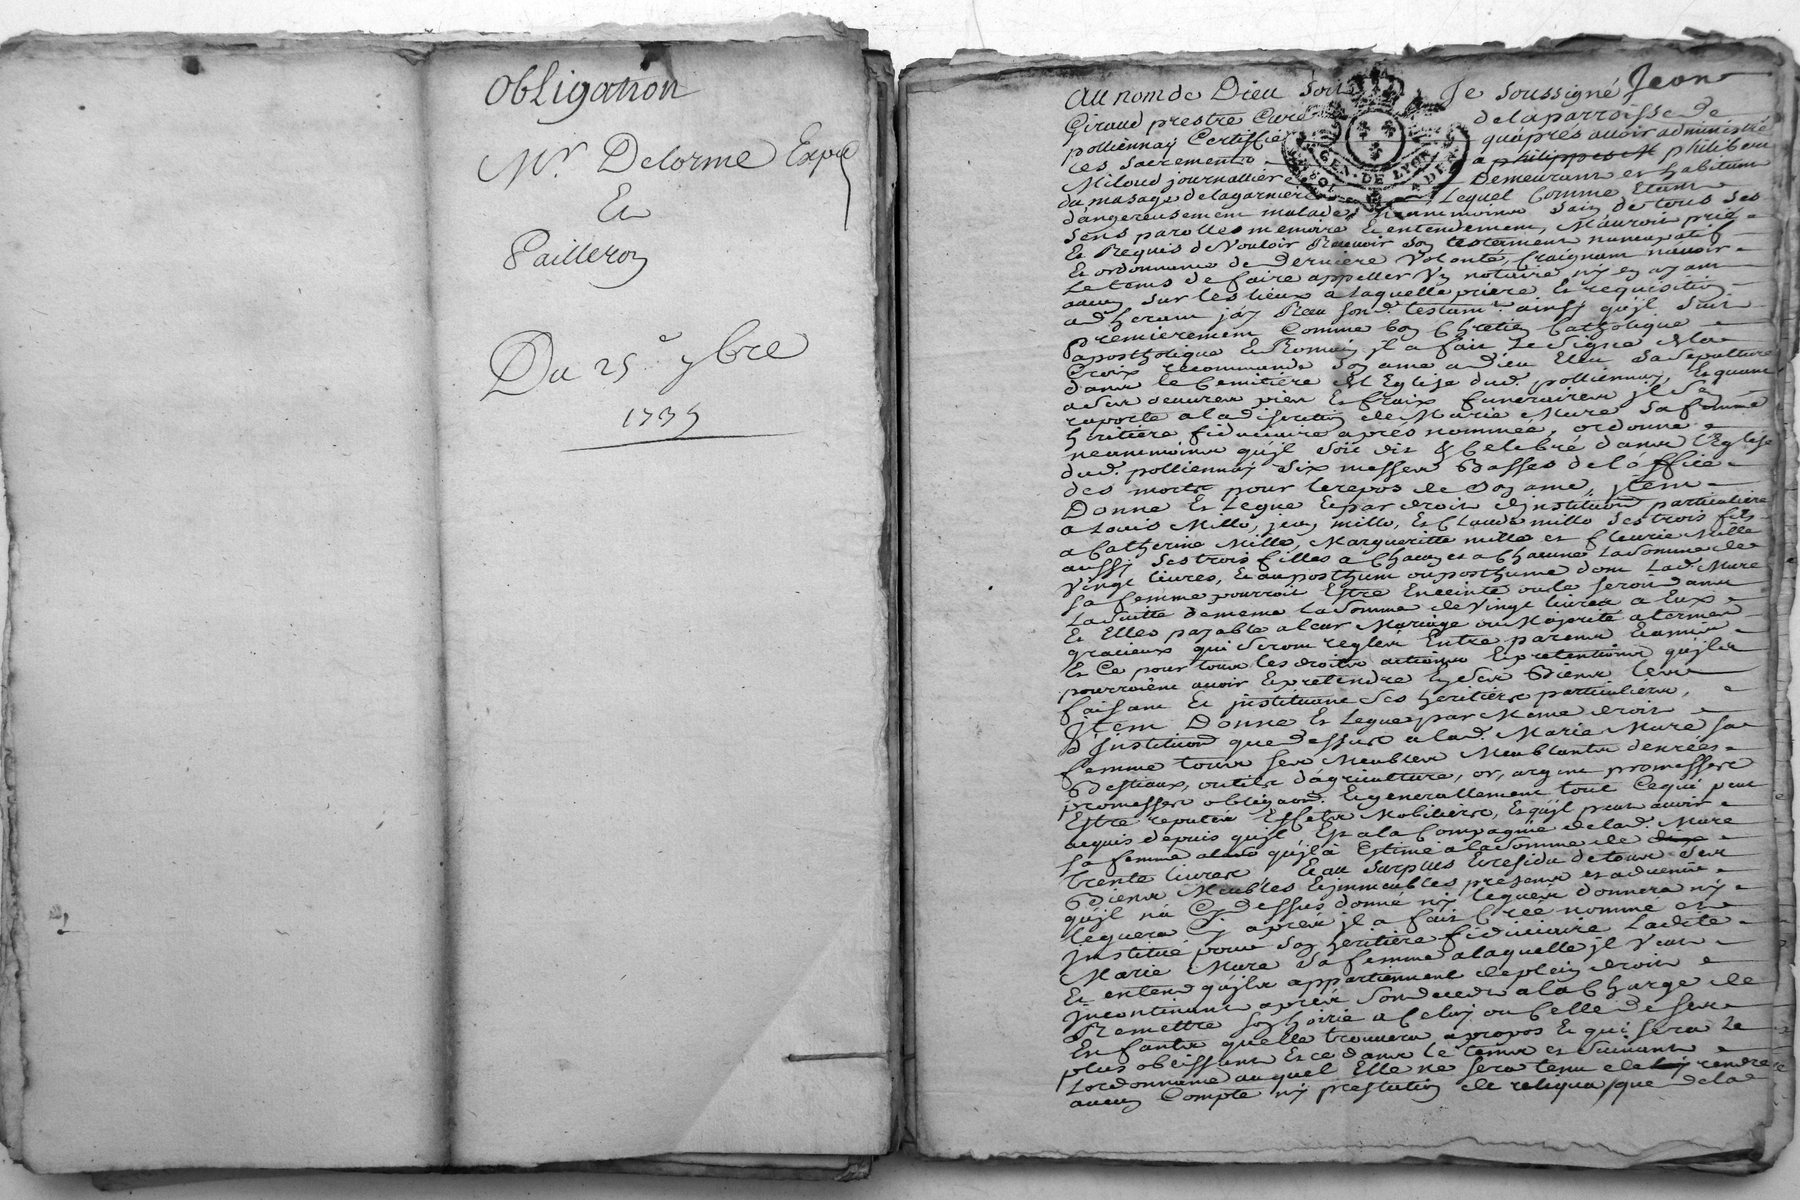 Obligation
Mr Delorme
Et
Pailleron
Du 25e 7bre
1735
Au nom de Dieu soit Je soussigné Jean
Giraud prestre Curé de la parroisse de
polliennay Certiffie qu'après avoir administré
les sacrements a philippes M philibert
Miloud journallier Demeurant et habitant
GEN. DE LYON
du masage de lagarniere Lequel Comme Etant
dangereusement malade neanmoins sain de tous ses
sens parolles memoire et entendement, M'auroit prié
Et Requis de Vouloir Recevoir son testement nuncupatif
Et ordonnance de derniere Volonté, Craignant n'avoir
Le tems de faire appeller Un notaire n'y en ayant
aucun sur les lieux a laquelle priere Et requisition
adherant j'ay Receu son d. testamt. ainsy qu'jl suit
premierement Comme bon Chretien Catholique
apostholique Et Romain jl a fait Le signe de la
Croix recommandé son ame a Dieu Eleu sa sepulture
dans le Cemitiere de l'Eglise dud. polliennay, Et quant
a ses oeuvres pies Et fraix funeraires jl se
raporte a la discretion de Marie Mure sa femme
heritiere fiduciaire après nommée, ordonne
neanmoins qu'jl soit dit & Celebré dans l'Eglise
dud. polliennay six messes Basses de l'office
des morts pour le repos de son ame, jtem
Donne Et Legue Et par droit d'jnstitution particuliere
a Louis Millo, jean millo, Et Claude millo ses trois fils
a Catherine Millo, Margueritte millo et fleurie Millo
aussy ses trois filles a Chacun et a Chacune La somme de
Vingt livres, Et au posthum ou posthume dont Lad. Mure
sa femme pourroit Estre Enceinte ou la seroit dans
La suitte de meme La somme de Vingt livres a Eux
Et Elles payable a leur Mariage ou Majorité a termes
gracieux qui seront reglés Entre parens Et amis
Et Ce pour tous les droits actions Et pretentions qu'jls
pourroient avoir Et pretendre En ses Biens Les
faisant Et jnstituant ses heritiers particuliers,
Jtem Donne Et Legue par Meme droit
d'Jnstitution que dessus a lad. Marie Mure sa
femme tous ses Meubles Meublants denrées
Bestiaux, outils d'agriculture, or, argent promesses
promesses obligaon. Et generallement tout Ce qui peut
Estre reputés Effets Mobiliers, Et qu'jl peut avoir
acquis depuis qu'jl Est a la Compagnie de lad. Mure
sa femme qu'jl a Estimé a la somme de dix
trente livres Et au surplus Et residu de tous ses
Biens Meubles Et jmmeubles presens et advenir
qu'jl n'a Cy dessus donné ny legués donnera ny
leguera Cy après jl a fait Créé nommé et
jnstitué pour son heritiere fiduciaire Ladite
Marie Mure sa femme a laquelle jl Veut
Et entend qu'jls appartiennent de plein droit
jncontinant après son deces a la Charge de
Remettre son hoirie a Celuy ou Celle de ses
Enfants quelle trouvera apropos Et qui sera le
plus obeissant Et ce dans le tems et suivant
Lordonnance auquel Elle ne sera tenu de luy rendre
aucun Compte ny prestation de reliqua, que de la d